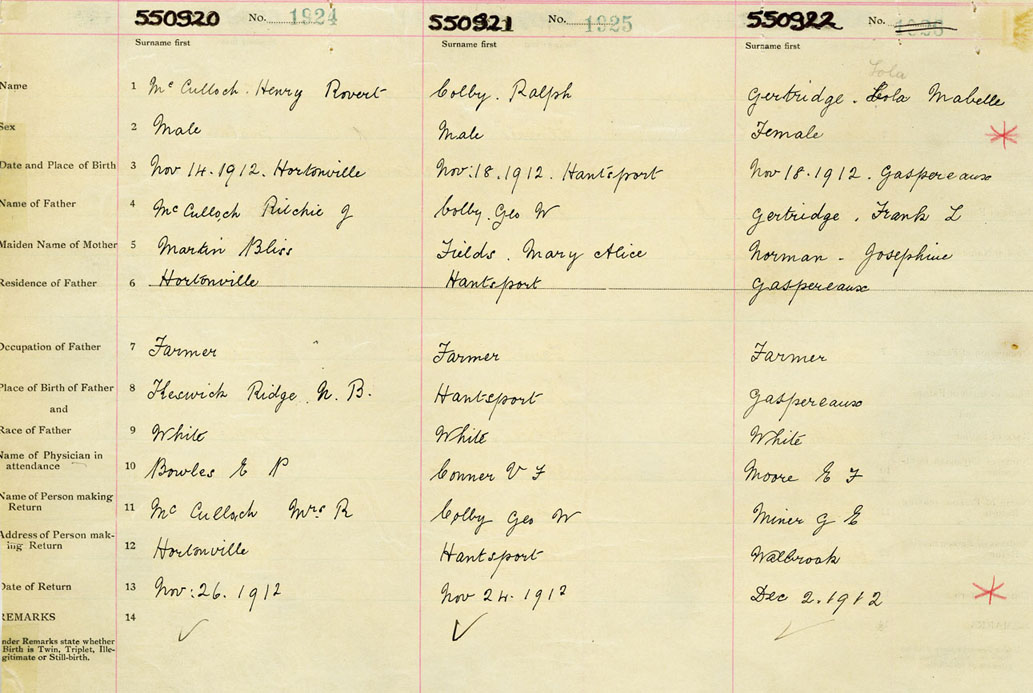 550920 No. 1924 550921 No. 1925 550922 No. 1926
Surname first Surname first Surname first
Lola
Name 1 Mc Culloch. Henry Rovert Colby. Ralph Gertridge. Lola Mabelle
Sex 2 Male Male Female
Date and Place of Birth 3 Nov 14. 1912. Hortonville Nov: 18. 1912. Hantsport Nov 18. 1912. Gaspereaux
Name of Father 4 Mc Culloch Ritchie J Colby. Geo W Gertridge. Frank L
Maiden Name of Mother 5 Martin Bliss Fields. Mary Alice Norman - Josephine
Residence of Father 6 Hortonville Hantsport Gaspereaux
Occupation of Father 7 Farmer Farmer Farmer
Place of Birth of Father 8 Keswick Ridge N. B. Hantsport Gaspereaux
and
Race of Father 9 White White White
Name of Physician in
attendance 10 Bowles E P Conner V F Moore E F
Name of Person making
Return 11 Mc Culloch Mrs R Colby Geo W Miner G E
Address of Person mak-
ing Return 12 Hortonville Hantsport Walbrook
Date of Return 13 Nov: 26. 1912 Nov 24. 1912 Dec 2. 1912
REMARKS 14
Under Remarks state whether
Birth is Twin, Triplet, Ille-
gitimate or Still-birth.